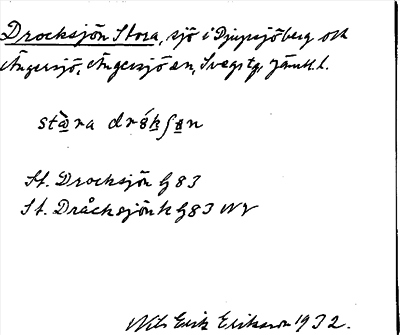 Drocksjön Stora, sjö i Djupsjöberg och
Ängersjö, Ängersjö sn, Svegs tg, Jämtl. l.
stàra dró̤kʃən
St. Drocksjön G83
St. Dråcksjön k G83 NV
Nils Erik Eriksson 1932.